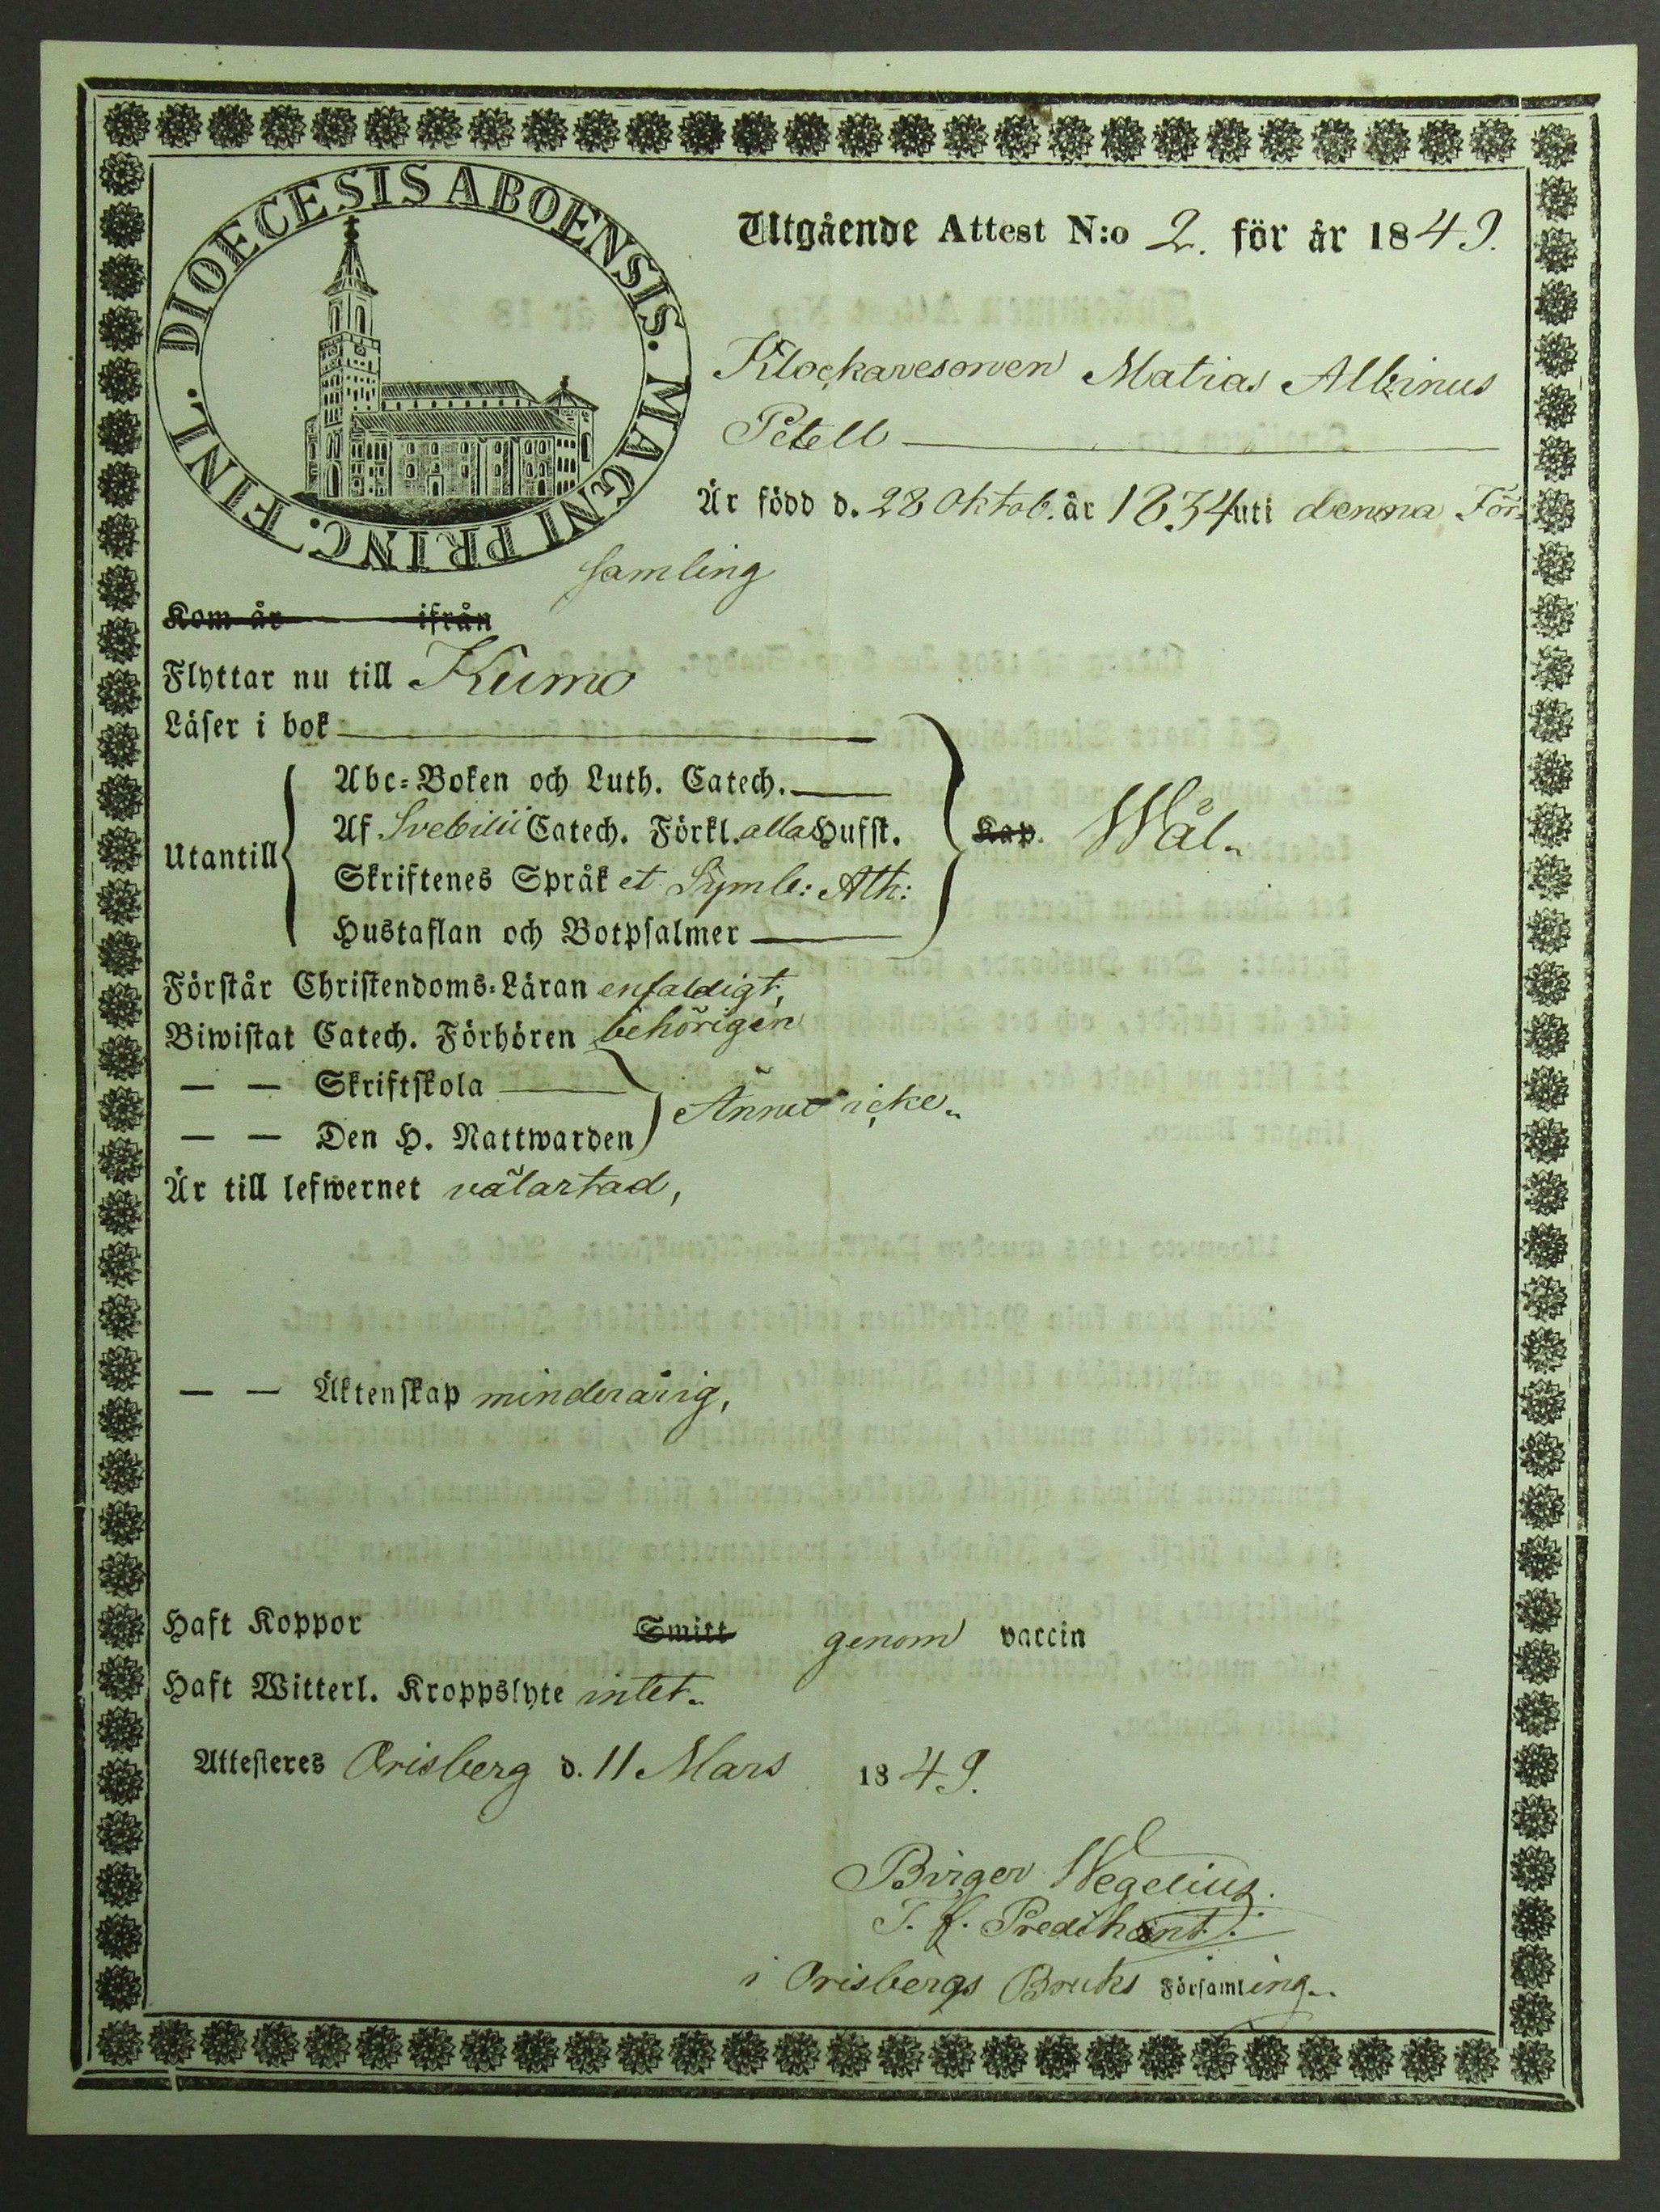 DIOECESIS ABOENSIS. MAGNI PRINC. FINL.
Utgående Attest N:o 2. för år 1849.
Klockaresonen Matias Albinus
Petell
Är född d. 28 Oktob. år 1834 uti denna För-
samling
Kom år ifrån
Flyttar nu till Kumo
Läser i bok
Utantill
Abc-Boken och Luth. Catech.
Af Svebilii Catech. Förkl. alla Hufst.
Skriftenes Språk et Symb: Ath:
Hustaflan och Botpsalmer
Kap. Wäl.
Förstår Christendoms-Läran enfaldigt,
Biwistat Catech. Förhören behörigen
— — Skriftskola
— — Den H. Nattwarden
Ännu icke.
Är till lefwernet välartad,
— — Äktenskap minderårig,
Haft Koppor Smitt genom vaccin
Haft Witterl. Kroppslyte intet.
Attesteres Orisberg d. 11 Mars 1849.
Birger Wegelius.
T. f. Predikant.
i Orisbergs Bruks Församling.